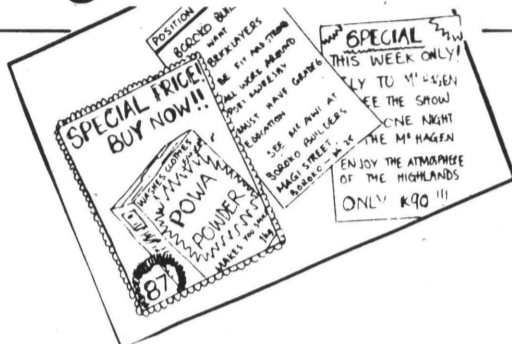 SPECIAL PRICE!
BUY NOW!!
WASHES CLOTHES
POWA
POWDER
MAKES YOU
1kg
87
POSITION
BOROKO
WANT
BRICKLAYERS
BE FIT AND
WORK AROUND
MORESBY
MUST HAVE GRADE 6
EDUCATION
SEE MR AWI AT
BOROKO BUILDERS
MAGI STREET
BOROKO
SPECIAL
THIS WEEK ONLY!
LY TO MT HAGEN
EE THE SHOW
ONE NIGHT
THE MT HAGEN
ENJOY THE ATMOSPHERE
OF THE HIGHLANDS
ONLY K90 !!!